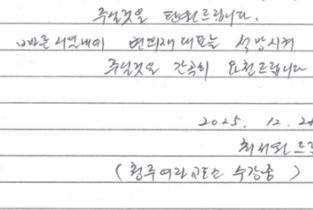 주실것을 탄원드립니다.
빠른 시일내에 변희재 대표를 석방시켜
주실것을 간곡히 요청드립니다
2025. 12. 2
최서원 드
(청주여자교도소 수감중)